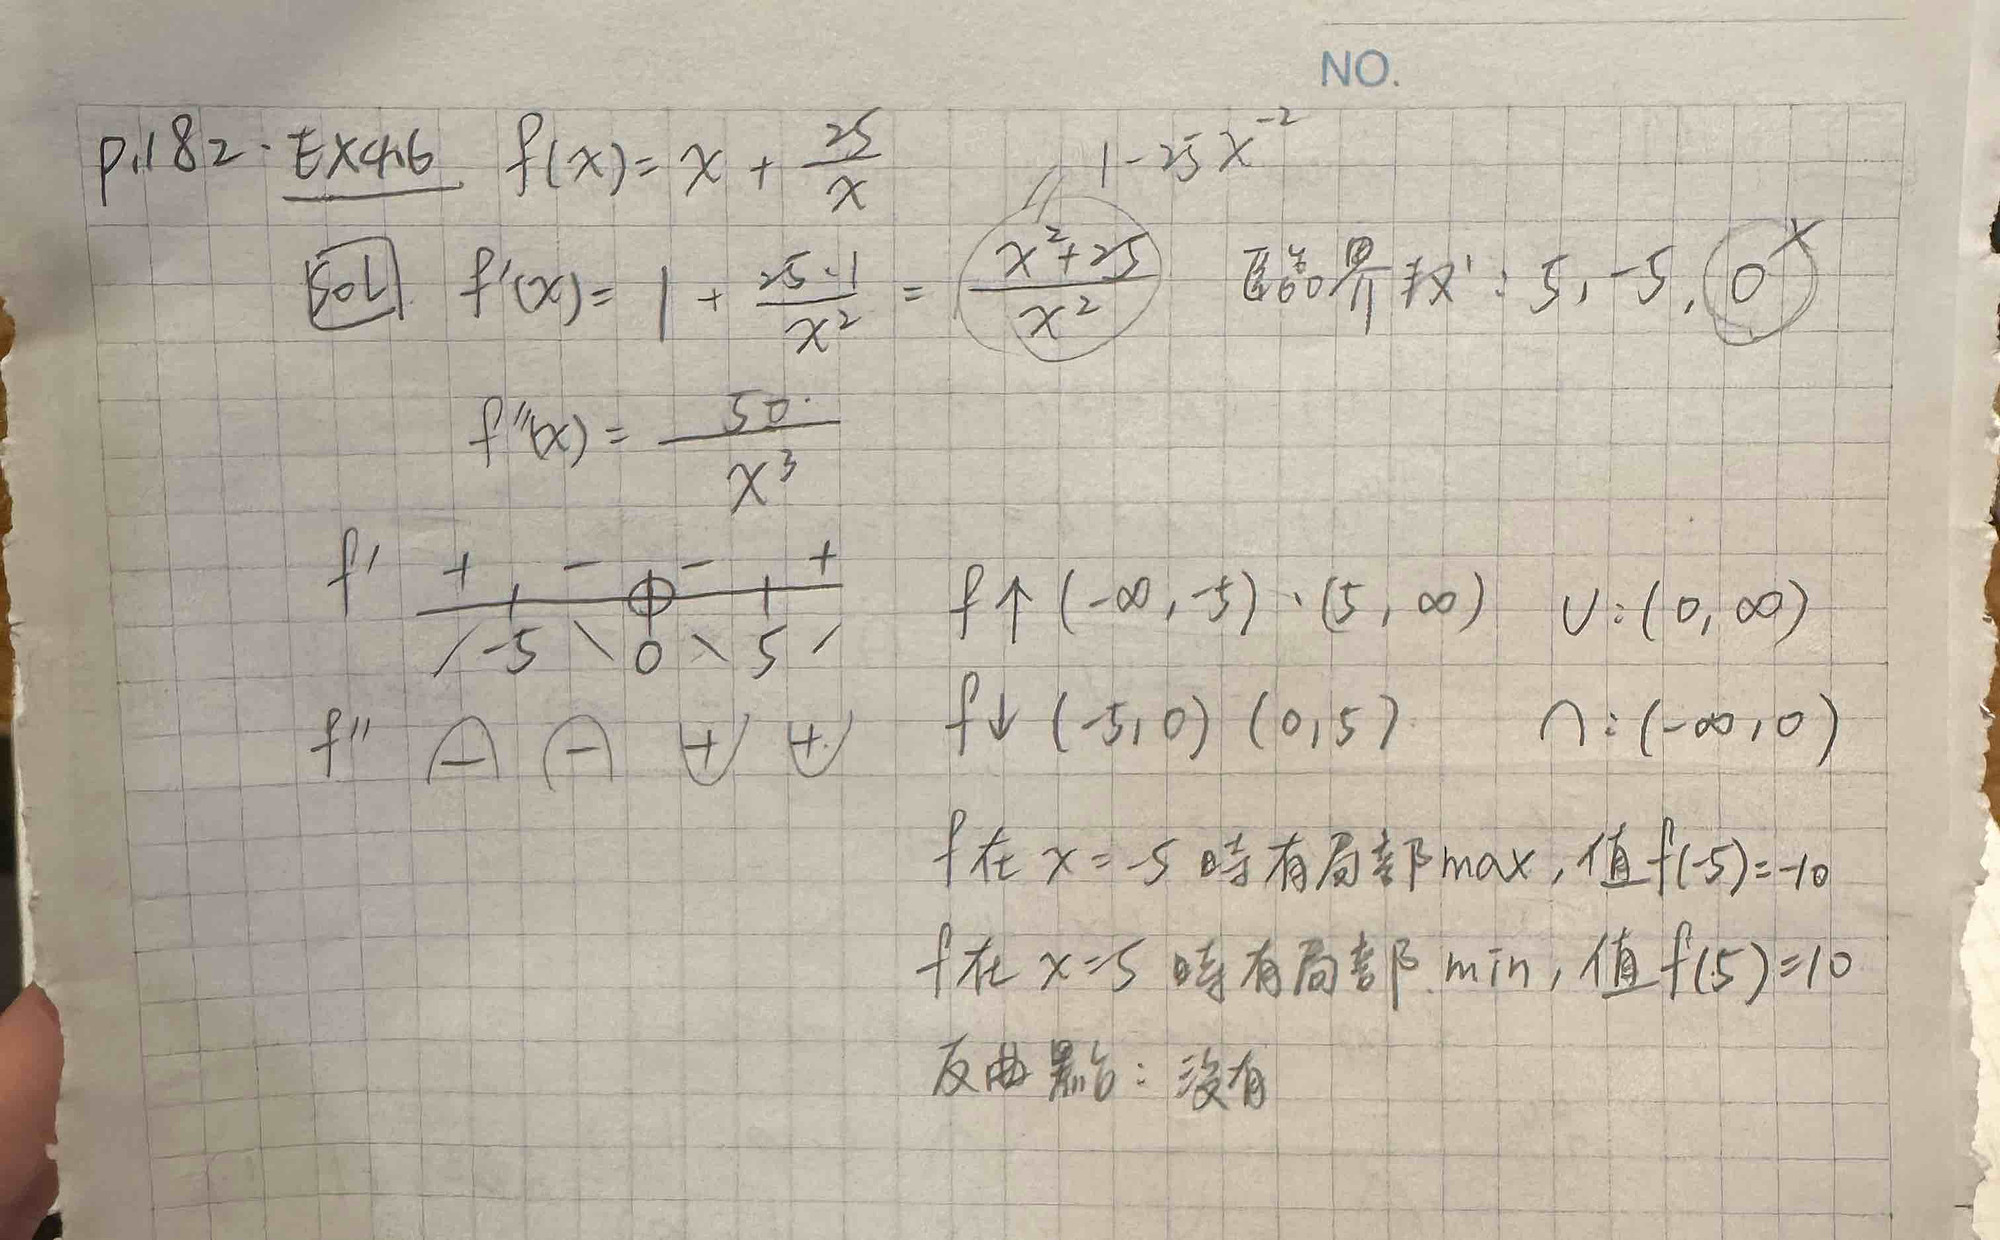 NO.
p.182. Ex4.6 f(x) = x + 25/x
1-25x⁻²
Sol f'(x) = 1 + 25·1/x² = x²+25/x² 臨界數: 5, -5, 0 x
f''(x) = 50/x³
f' + - - +
/ -5 \ 0 \ 5 /
f'' - - + +
f↑ (-∞, -5)、(5, ∞) ∪: (0, ∞)
f↓ (-5, 0) (0, 5) ∩: (-∞, 0)
f在 x = -5 時有局部max, 值f(-5)=-10
f在 x=5 時有局部min, 值f(5)=10
反曲點: 沒有